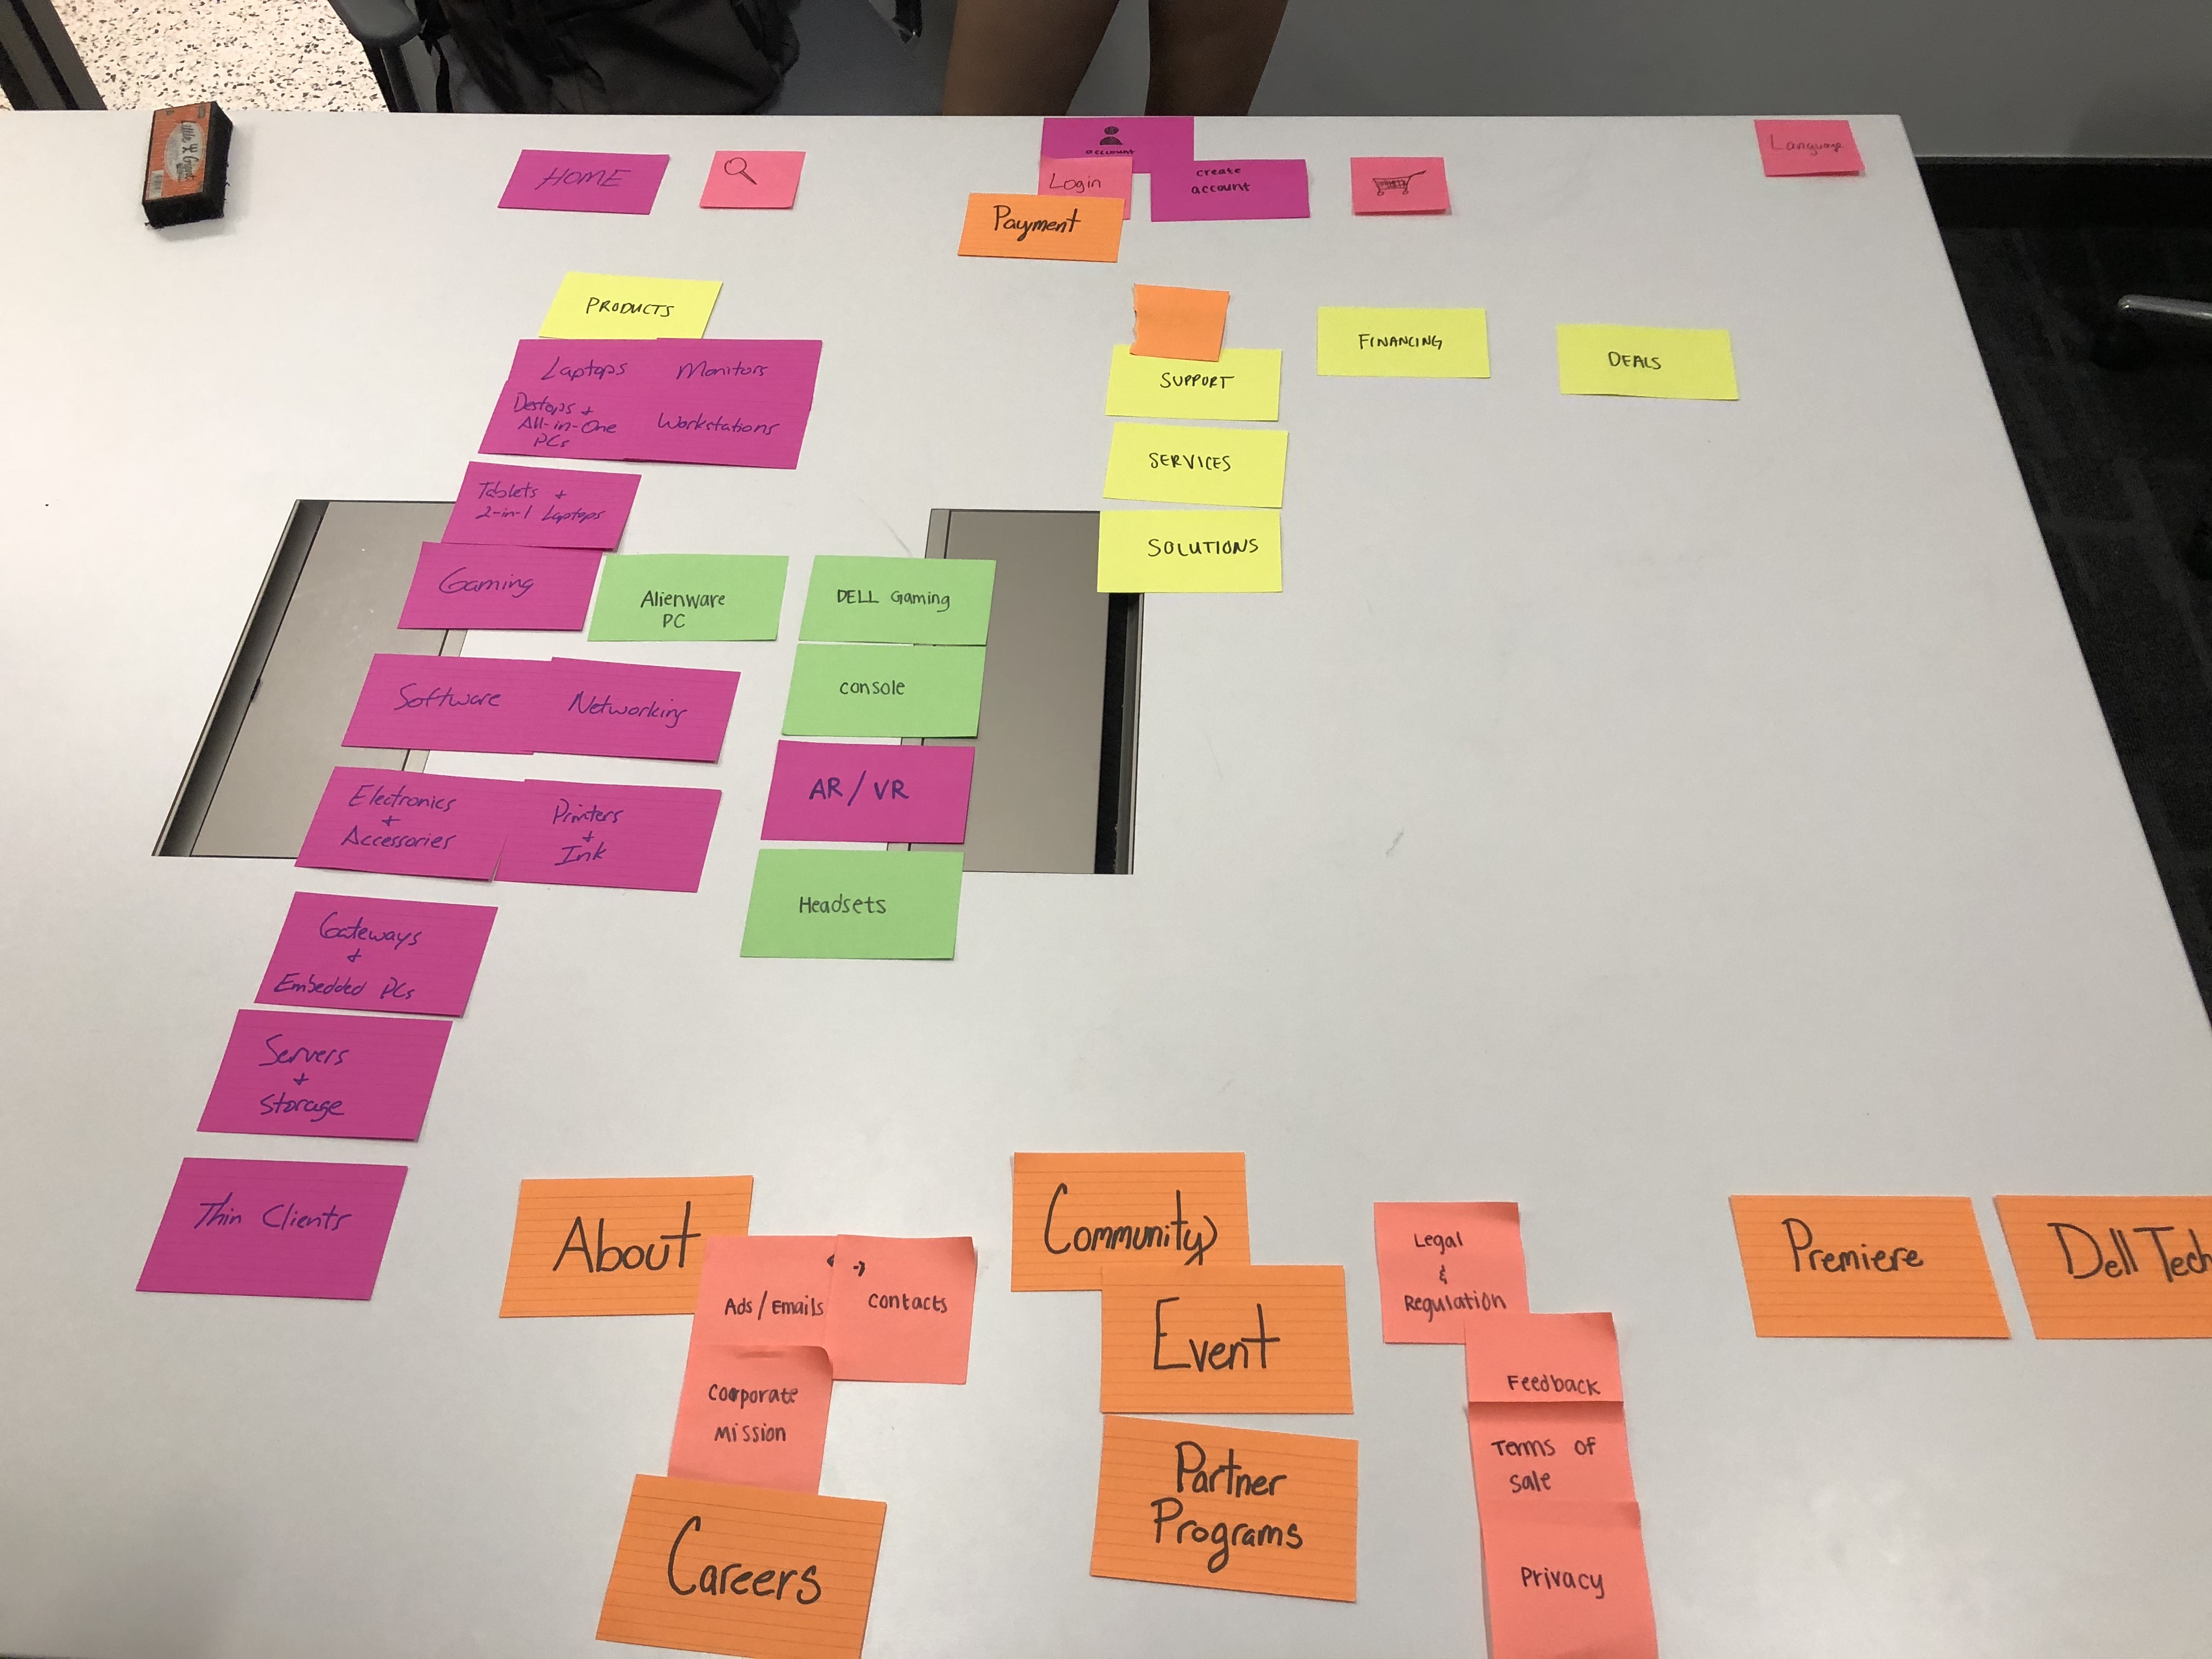 Little Giant
HOME
account
Login
create
account
Language
Payment
PRODUCTS
Laptops
Monitors
Destops +
All-in-One
PCs
Workstations
Tablets +
2-in-1 Laptops
Gaming
Alienware
PC
DELL Gaming
console
AR/VR
Headsets
Software
Networking
Electronics
+
Accessories
Printers
+
Ink
Gateways
+
Embedded PCs
Servers
+
Storage
Thin Clients
SUPPORT
SERVICES
SOLUTIONS
FINANCING
DEALS
About
Ads/Emails
contacts
corporate
mission
Careers
Community
Event
Partner
Programs
Legal
&
Regulation
Feedback
Terms of
sale
Privacy
Premiere
Dell Tech